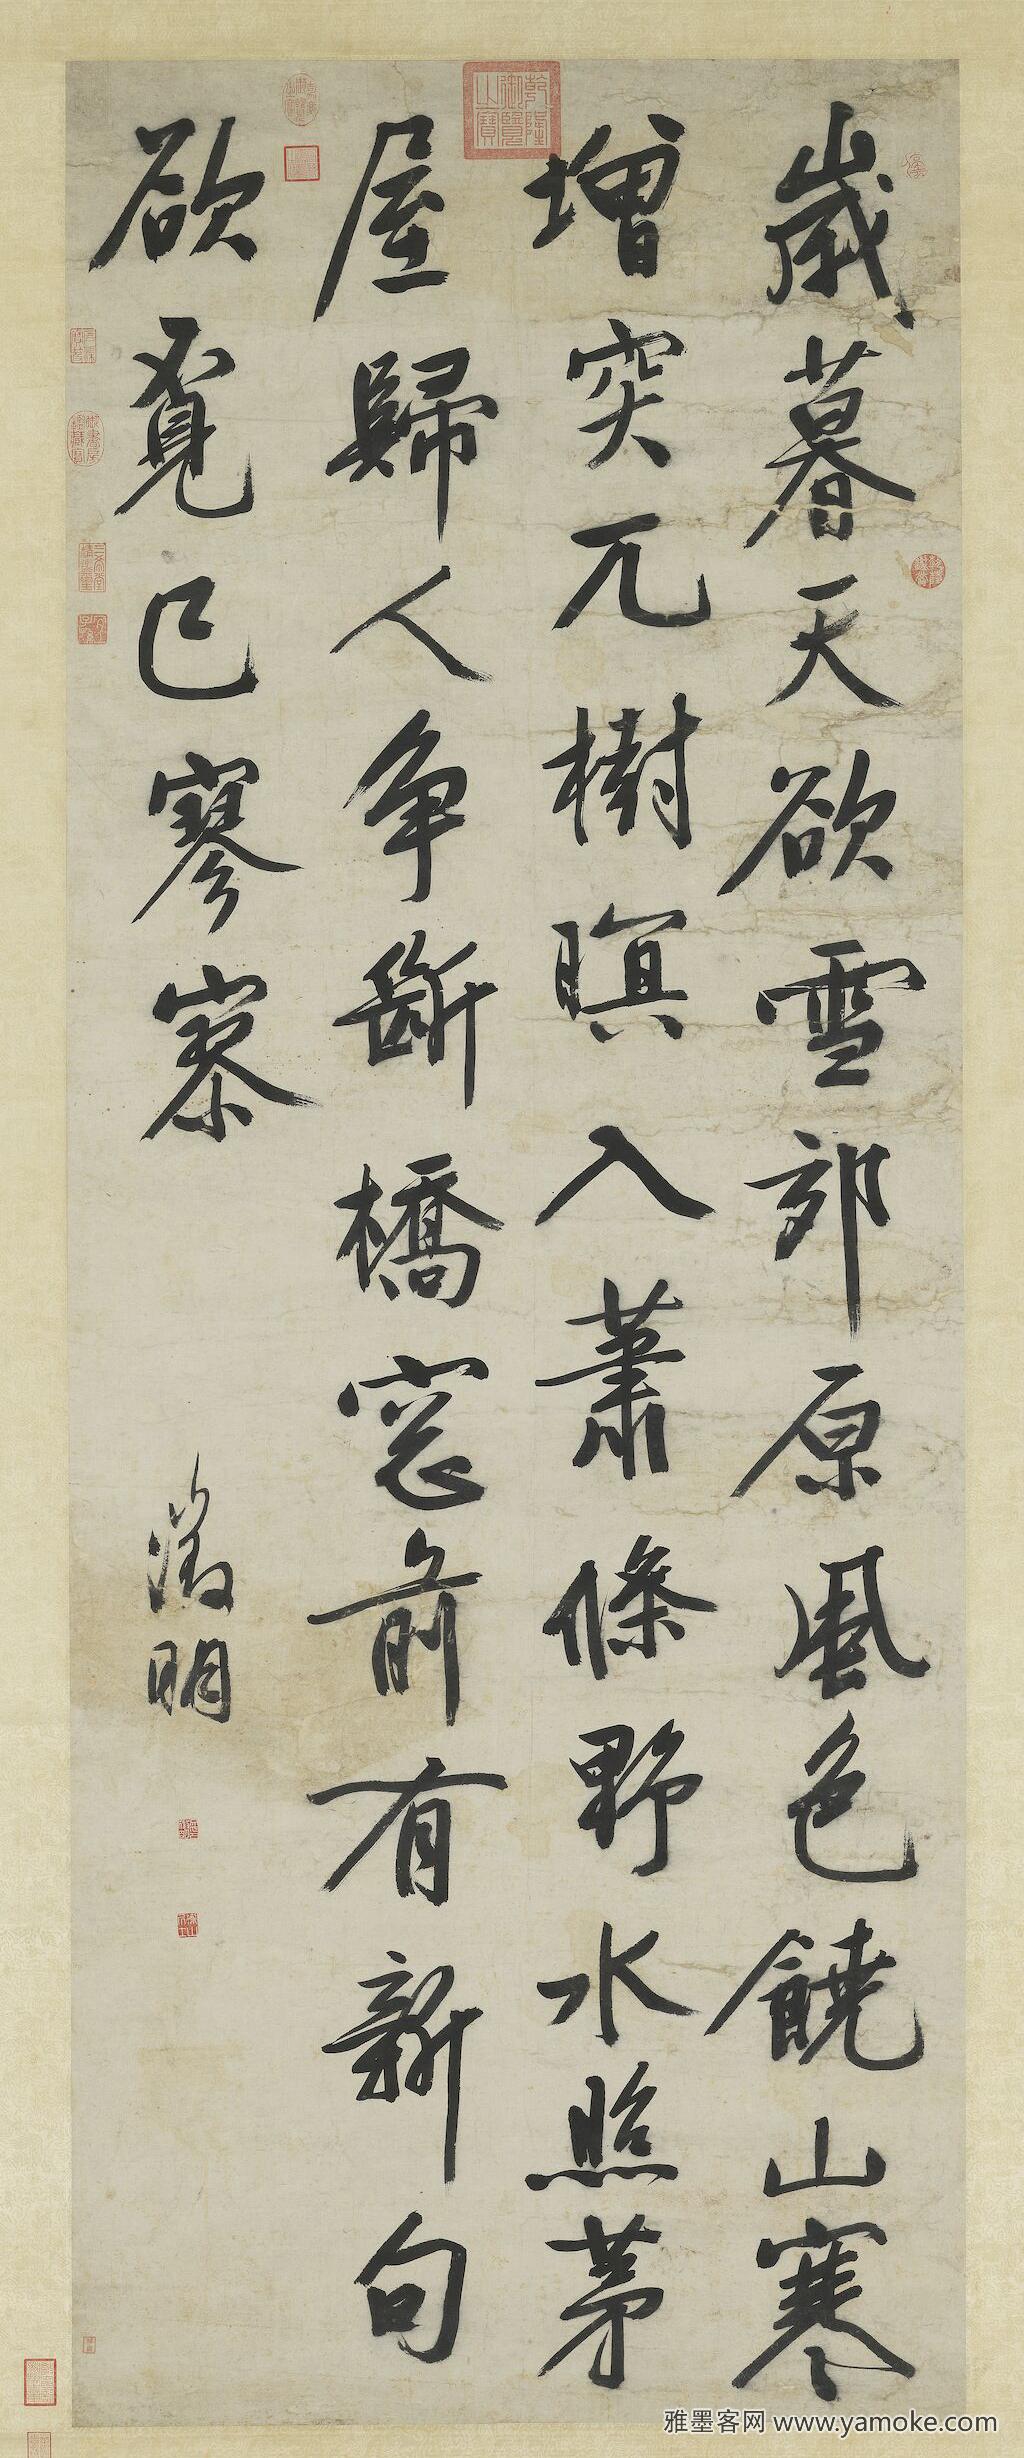 歲暮天欲雪郊原風色饒山寒
增突兀樹暝入蕭條野水照茅
屋歸人爭斷橋窓前有新句
欲覓已寥寥
徵明
乾隆御覽之寶
雅墨客网 www.yamoke.com